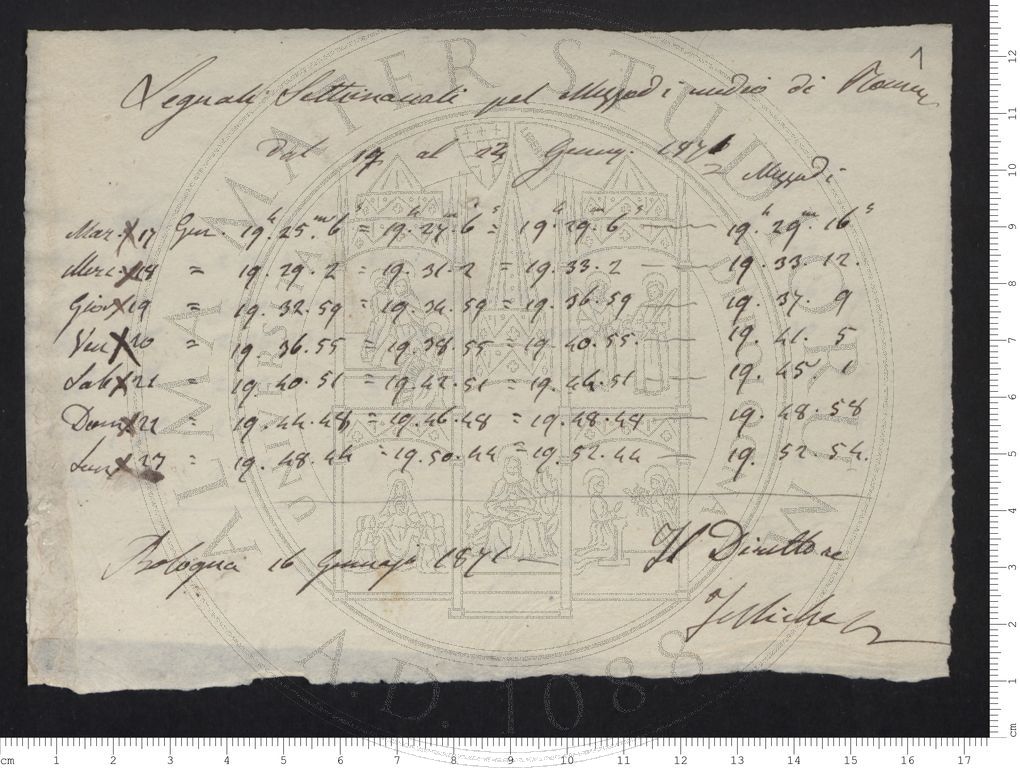 1
Segnali Settimanali pel Mezzodì medio di Roma
Dal 17 al 23 Genn. 1871
Mezzodì
Mar. 17 Gen. 19.h 25.m 6s = 19.h 27.m 6s = 19.h 29.m 6s — 19.h 29.m 16s
Merc 18 = 19. 29. 2 = 19. 31. 2 = 19. 33. 2 — 19. 33. 12.
Giov 19 = 19. 32. 59 = 19. 34. 59 = 19. 36. 59 — 19. 37. 9
Ven 20 = 19. 36. 55 = 19. 38. 55 = 19. 40. 55. — 19. 41. 5
Sab 21 = 19. 40. 51 = 19. 42. 51 = 19. 44. 51 — 19. 45. 1
Dom 22 = 19. 44. 48 = 19. 46. 48 = 19. 48. 48 — 19. 48. 58
Lun 23 = 19. 48. 44 = 19. 50. 44 = 19. 52. 44 — 19. 52. 54.
Bologna 16 Gennajo 1871 —
Il Direttore
ALMA MATER STUDIORUM
A.D. 1088
cm 1 2 3 4 5 6 7 8 9 10 11 12 13 14 15 16 17
cm 1 2 3 4 5 6 7 8 9 10 11 12